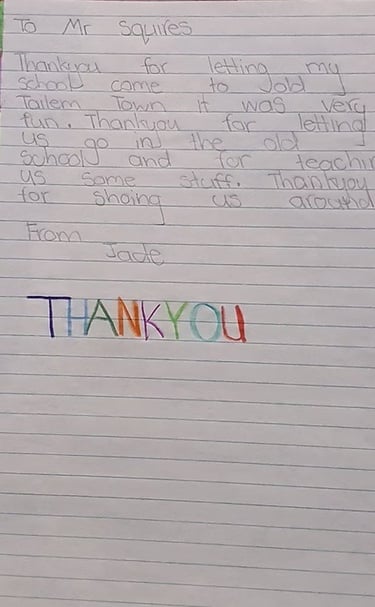 To Mr Squires
Thankyou for letting my
school come to Jold
Tailem Town it was very
fun. Thankyou for letting
us go in the old
school and for teachin
us some stuff. Thankyou
for shoing us around
From
Jade
THANKYOU